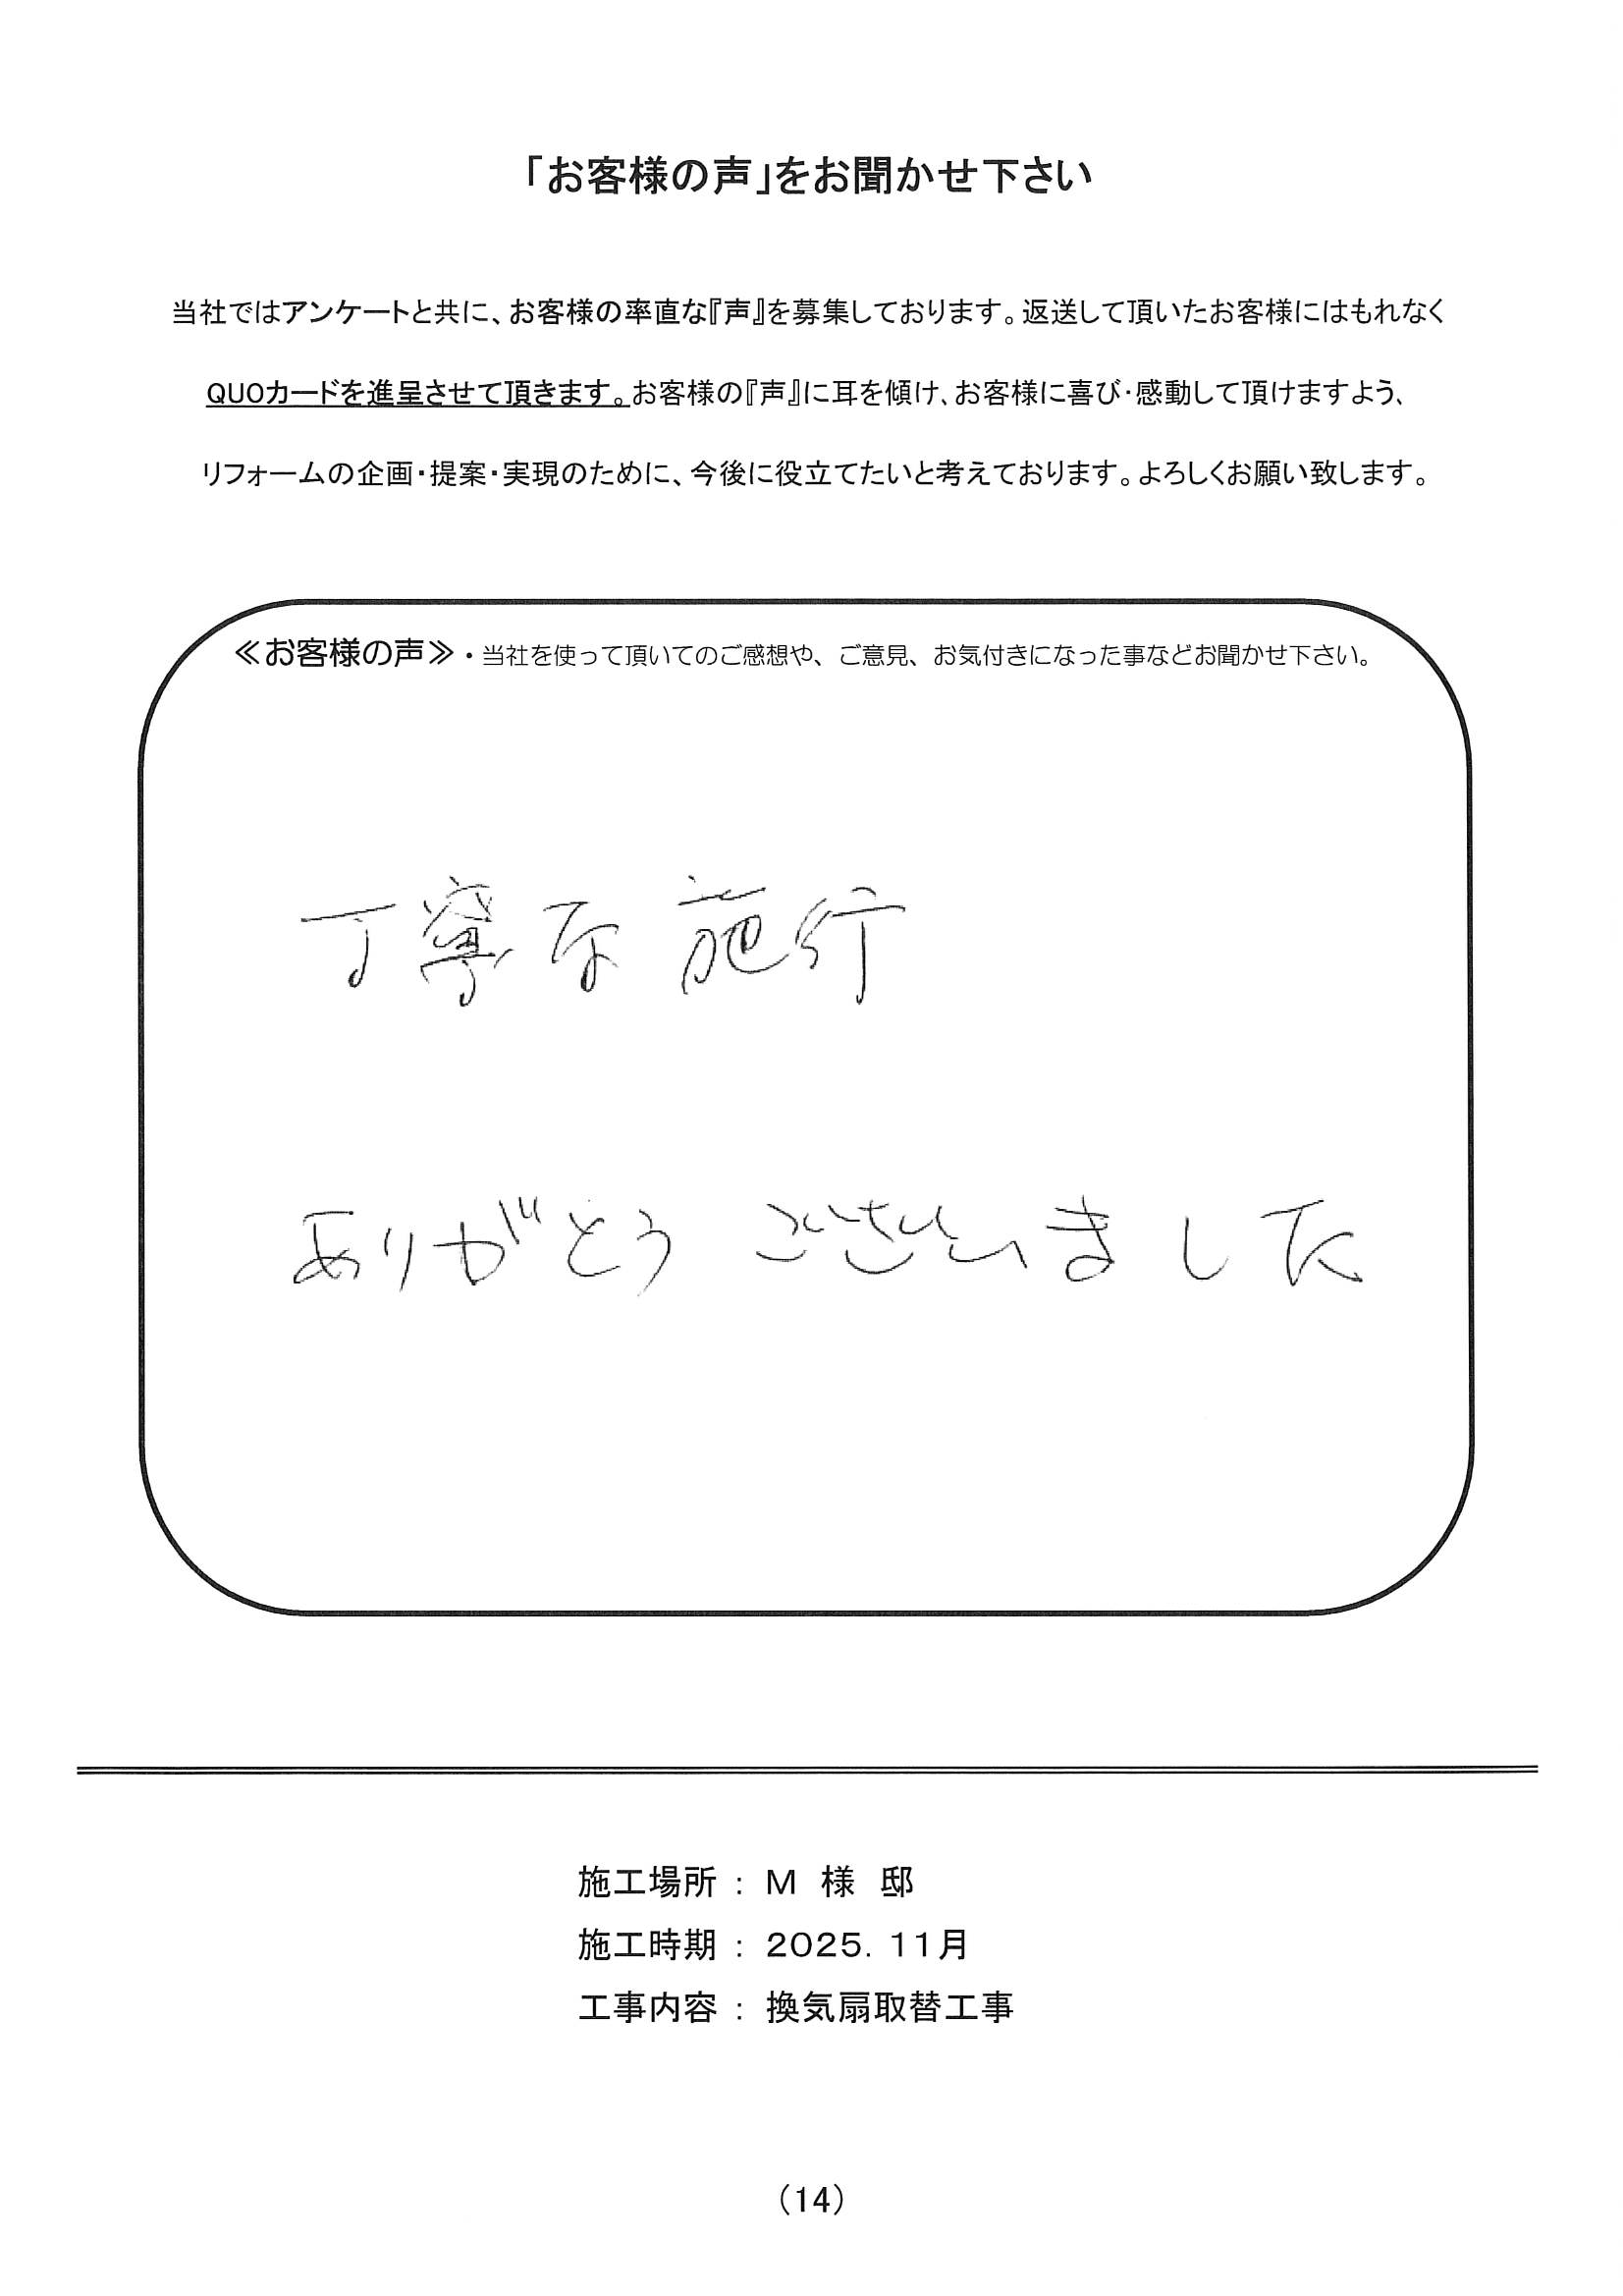 「お客様の声」をお聞かせ下さい
当社ではアンケートと共に、お客様の率直な『声』を募集しております。返送して頂いたお客様にはもれなく
QUOカードを進呈させて頂きます。お客様の『声』に耳を傾け、お客様に喜び・感動して頂けますよう、
リフォームの企画・提案・実現のために、今後に役立てたいと考えております。よろしくお願い致します。
≪お客様の声≫・当社を使って頂いてのご感想や、ご意見、お気付きになった事などお聞かせ下さい。
丁寧な施行
ありがとうございました
施工場所 : M 様 邸
施工時期 : 2025. 11月
工事内容 : 換気扇取替工事
(14)